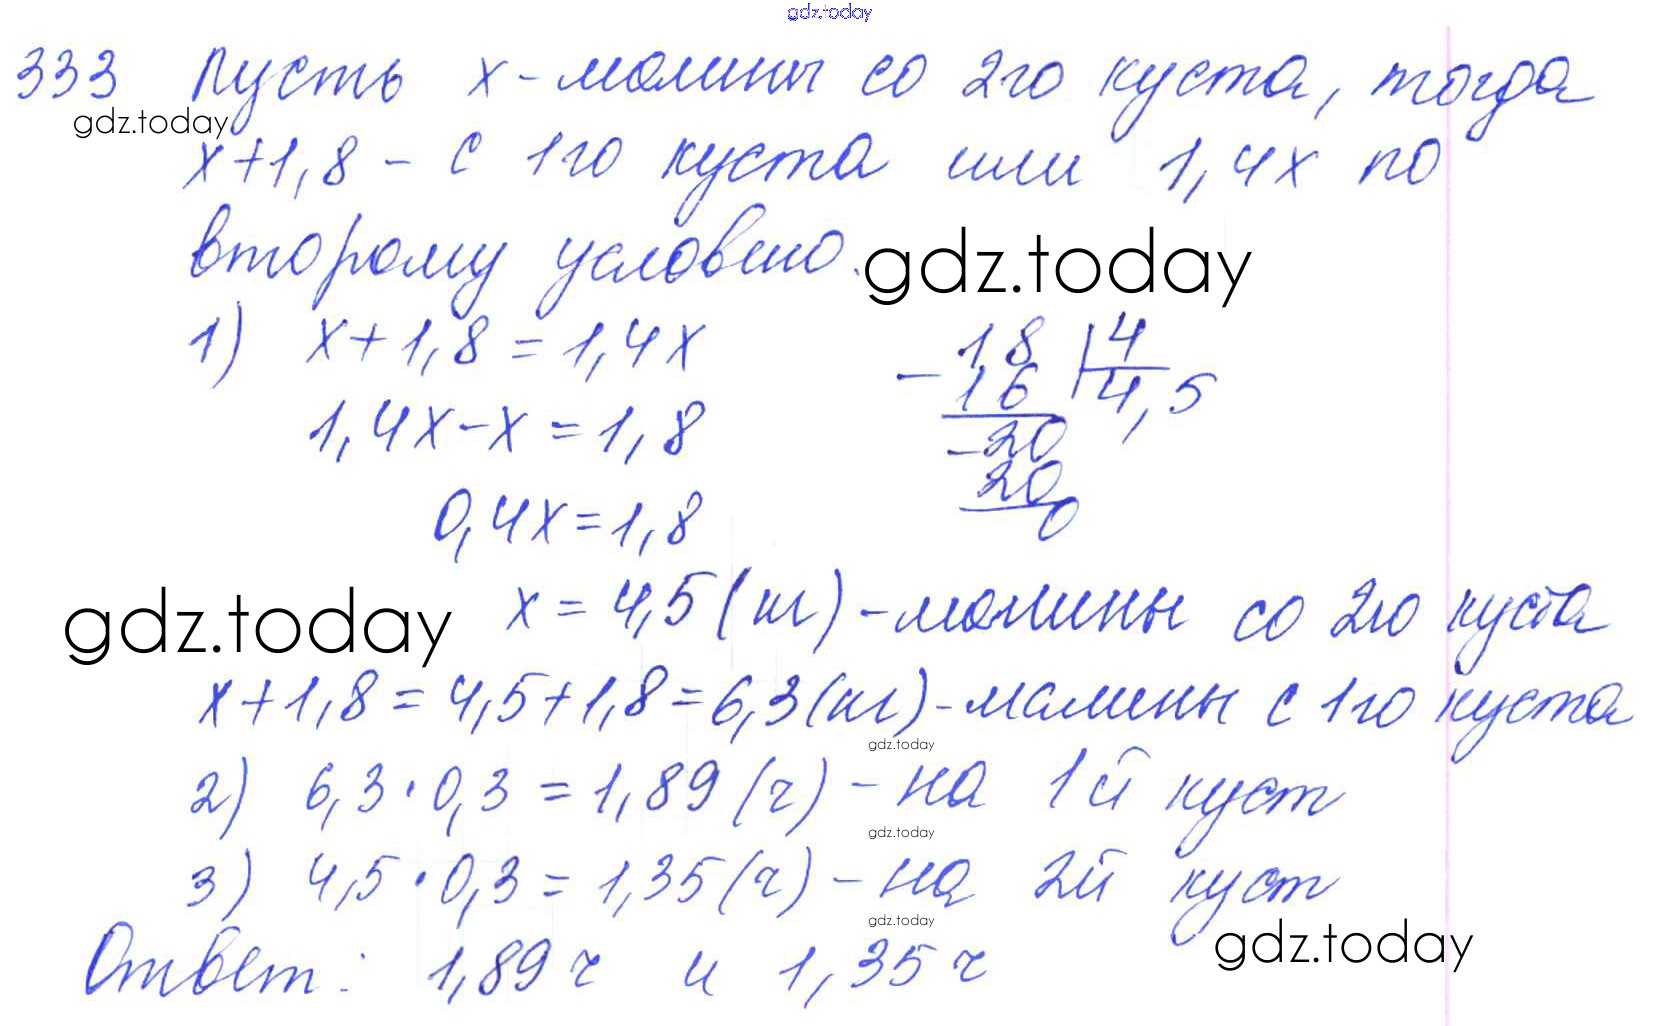 gdz.today
333 Пусть x - малины со 2го куста, тогда
gdz.today
x+1,8 - с 1го куста или 1,4x по
второму условию.
gdz.today
1) x+1,8=1,4x
1,4x-x=1,8
0,4x=1,8
-18 |4
16 4,5
-20
20
0
gdz.today
x=4,5(кг)-малины со 2го куста
x+1,8=4,5+1,8=6,3(кг)-малины с 1го куста
gdz.today
2) 6,3·0,3=1,89(ч)-на 1й куст
gdz.today
3) 4,5·0,3=1,35(ч)-на 2й куст
gdz.today
gdz.today
Ответ: 1,89 ч и 1,35 ч